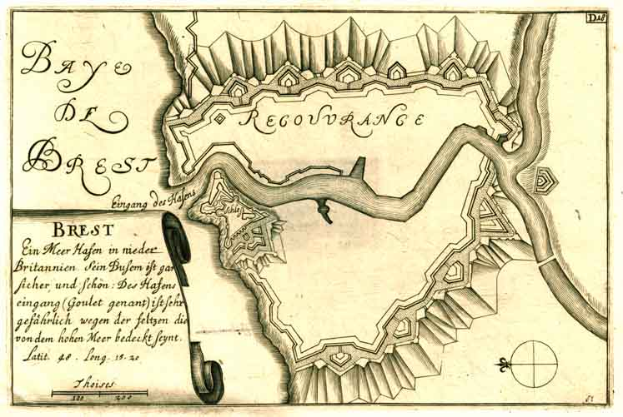 BAYE
DE
BREST
RECOUVRANCE
Eingang des Hafens
Schlos
BREST
Ein Meer Hafen in nieder
Britannien. Sein Busem ist gar
sicher, und schön: Des Hafens
eingang (Goulet genant) ist sehr
gefährlich wegen der feltzen die
von dem hohen Meer bedeckt seynt.
Latit. 48. Long. 15.20
Thoises
100 200
51